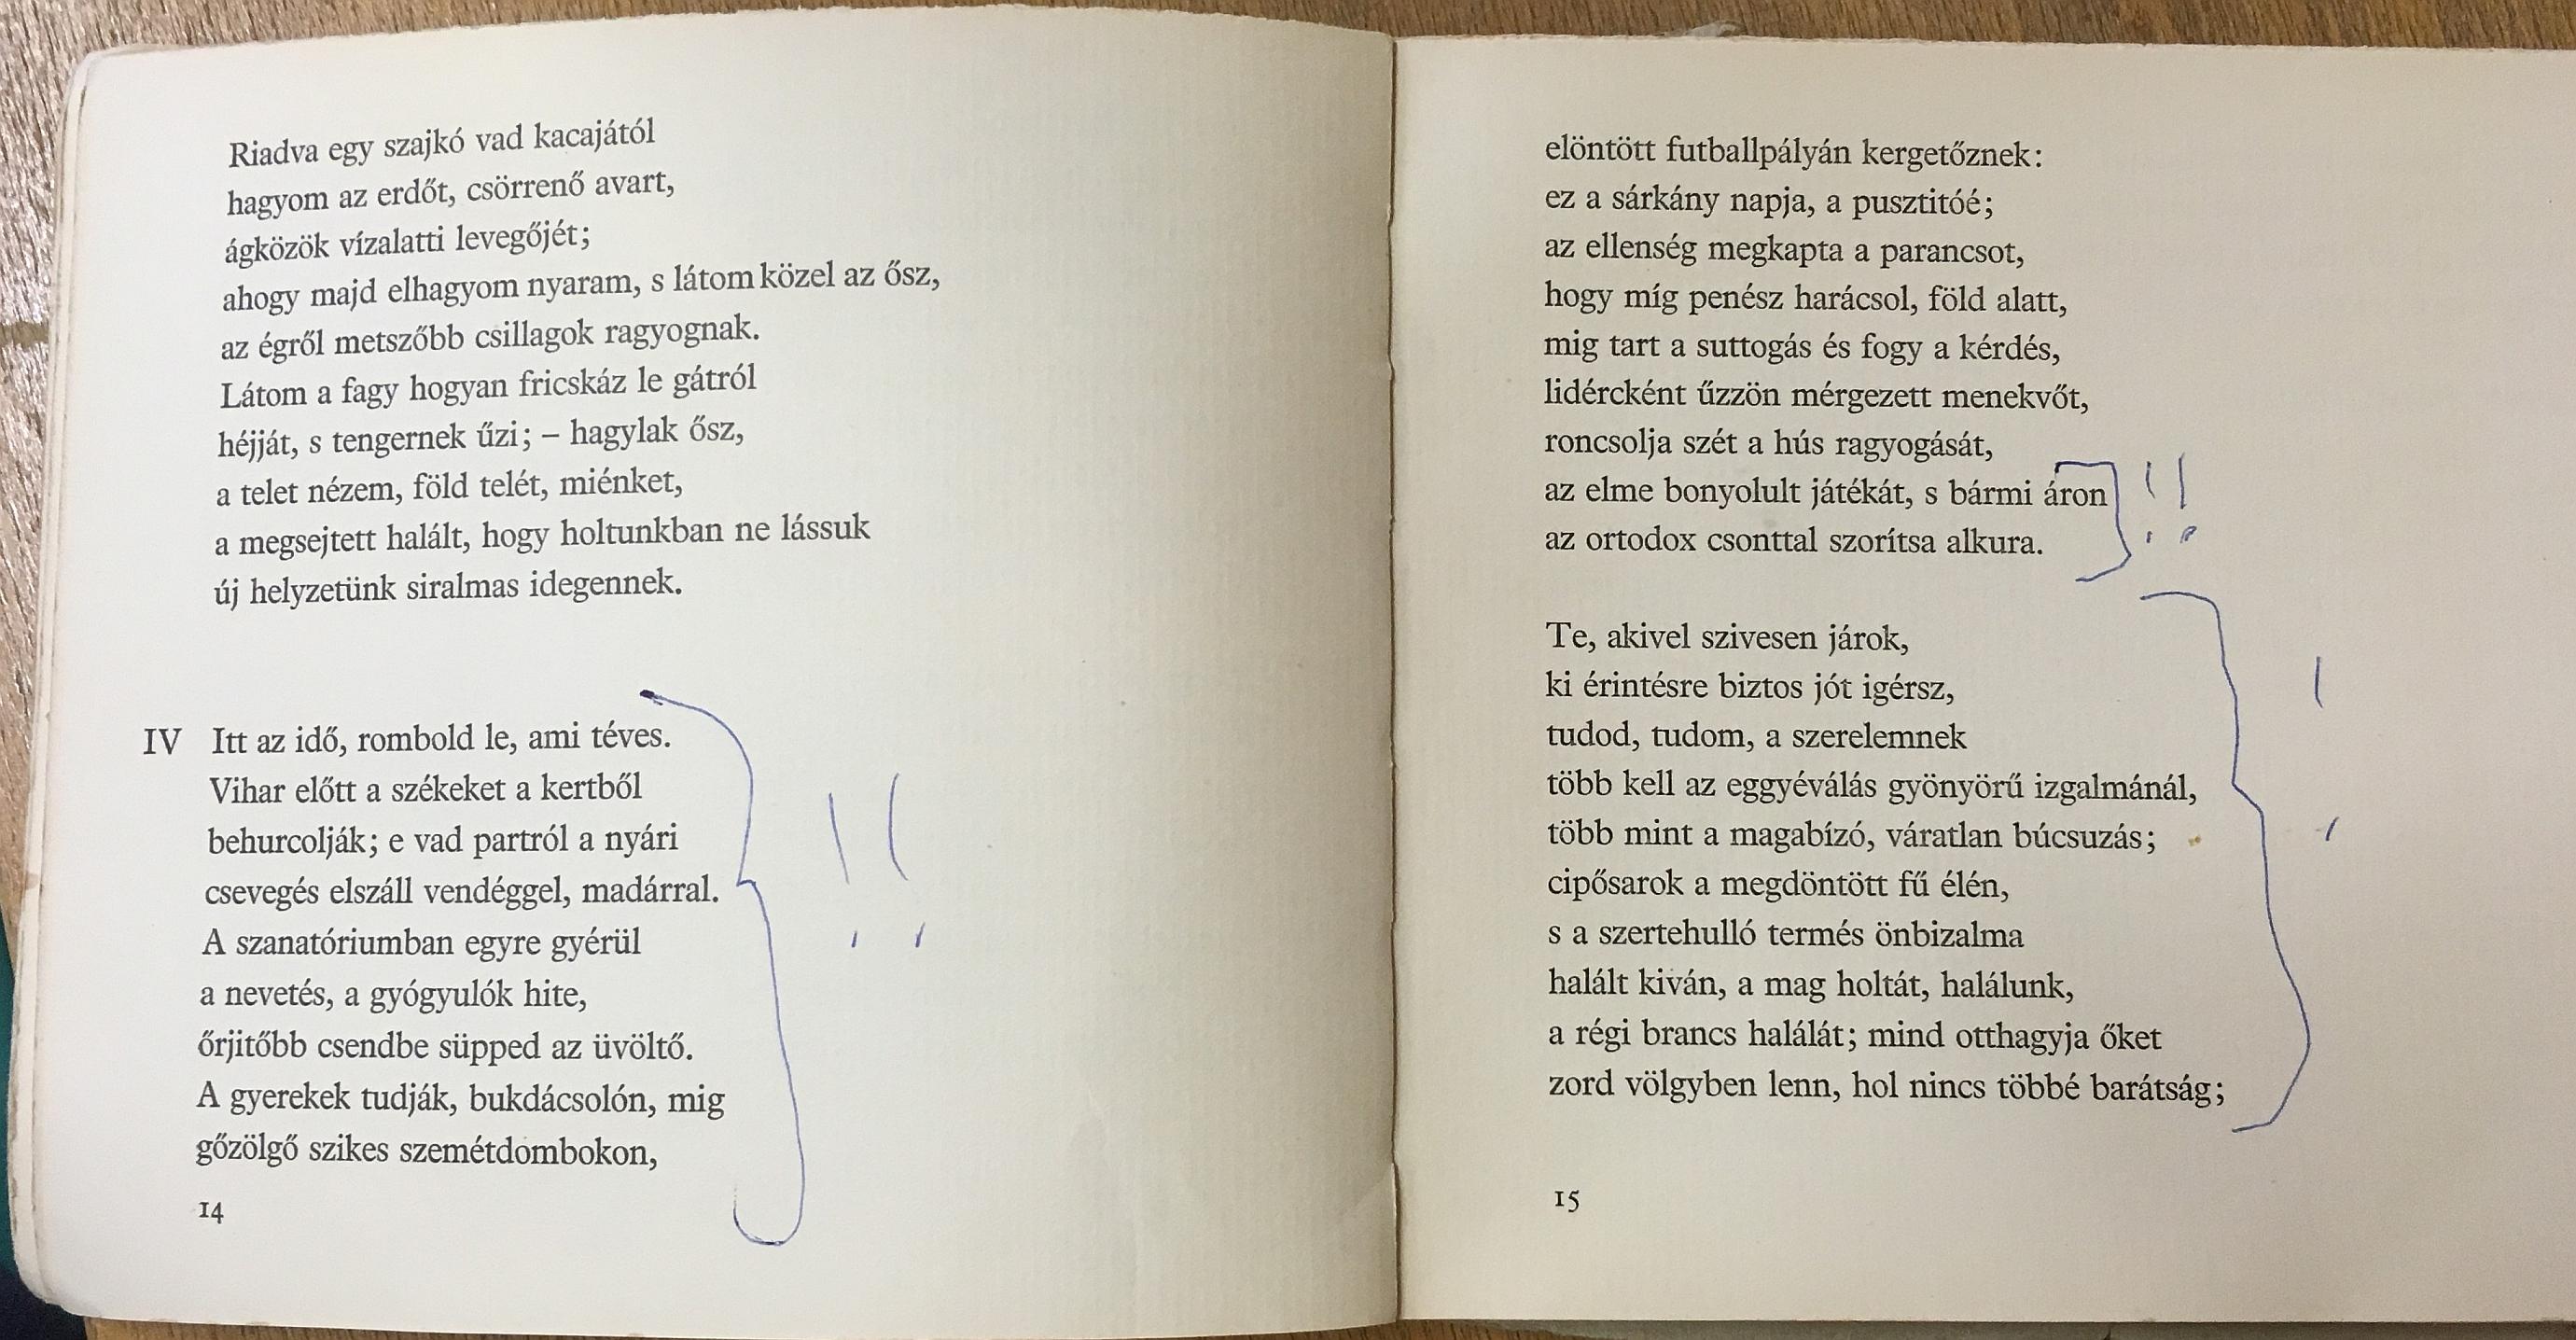 Riadva egy szajkó vad kacajától
hagyom az erdőt, csörrenő avart,
ágközök vízalatti levegőjét;
ahogy majd elhagyom nyaram, s látom közel az ősz,
az égről metszőbb csillagok ragyognak.
Látom a fagy hogyan fricskáz le gátról
héjját, s tengernek űzi; – hagylak ősz,
a telet nézem, föld telét, miénket,
a megsejtett halált, hogy holtunkban ne lássuk
új helyzetünk siralmas idegennek.
IV Itt az idő, rombold le, ami téves.
Vihar előtt a székeket a kertből
behurcolják; e vad partról a nyári
csevegés elszáll vendéggel, madárral.
A szanatóriumban egyre gyérül
a nevetés, a gyógyulók hite,
őrjitőbb csendbe süpped az üvöltő.
A gyerekek tudják, bukdácsolón, mig
gőzölgő szikes szemétdombokon,
!!
14
elöntött futballpályán kergetőznek:
ez a sárkány napja, a pusztitóé;
az ellenség megkapta a parancsot,
hogy míg penész harácsol, föld alatt,
mig tart a suttogás és fogy a kérdés,
lidércként űzzön mérgezett menekvőt,
roncsolja szét a hús ragyogását,
az elme bonyolult játékát, s bármi áron
az ortodox csonttal szorítsa alkura.
!!
Te, akivel szivesen járok,
ki érintésre biztos jót igérsz,
tudod, tudom, a szerelemnek
több kell az eggyéválás gyönyörű izgalmánál,
több mint a magabízó, váratlan búcsuzás;
cipősarok a megdöntött fű élén,
s a szertehulló termés önbizalma
halált kiván, a mag holtát, halálunk,
a régi brancs halálát; mind otthagyja őket
zord völgyben lenn, hol nincs többé barátság;
!
15